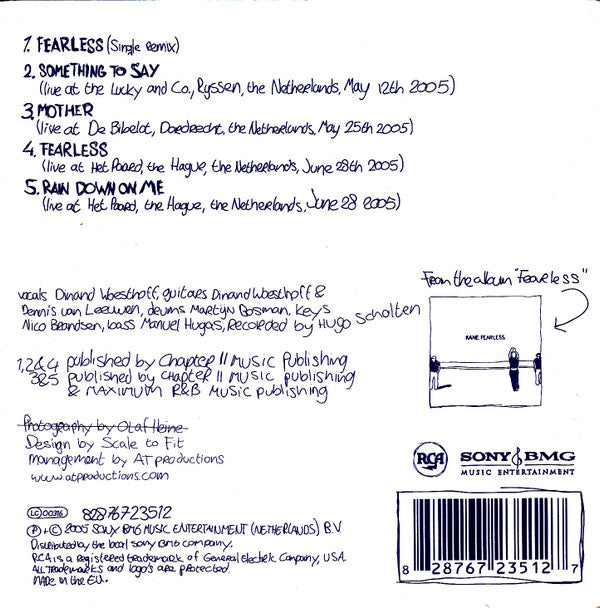 1. FEARLESS (Single Remix)
2. SOMETHING TO SAY
(live at the Lucky and Co., Ryssen, the Netherlands, May 12th 2005)
3. MOTHER
(live at De Bibelot, Dordrecht, the Netherlands, May 25th 2005)
4. FEARLESS
(live at Het Paard, the Hague, the Netherlands, June 28th 2005)
5. RAIN DOWN ON ME
(live at Het Paard, the Hague, the Netherlands, June 28 2005)
vocals Dinand Woesthoff, guitars Dinand Woesthoff &
Dennis van Leeuwen, drums Martijn Bosman, keys
Nico Brandsen, bass Manuel Hugas, Recorded by Hugo Scholten
1,2&4 published by Chapter II Music Publishing
3&5 published by Chapter II Music publishing
& MAXIMUM R&B Music publishing
Photography by Olaf Heine
Design by Scale to Fit
management by AT productions
www.atproductions.com
From the album "Fearless"
KANE FEARLESS
RCA
SONY BMG
MUSIC ENTERTAINMENT
LC 00316 82876723512
℗+© 2005 SONY BMG MUSIC ENTERTAINMENT (NETHERLANDS) B.V
Distributed by the local Sony BMG company.
RCA is a Registered trademark of General Electric Company, USA.
All Trademarks and logo's are protected
MADE in the E.U.
8 28767 23512 7